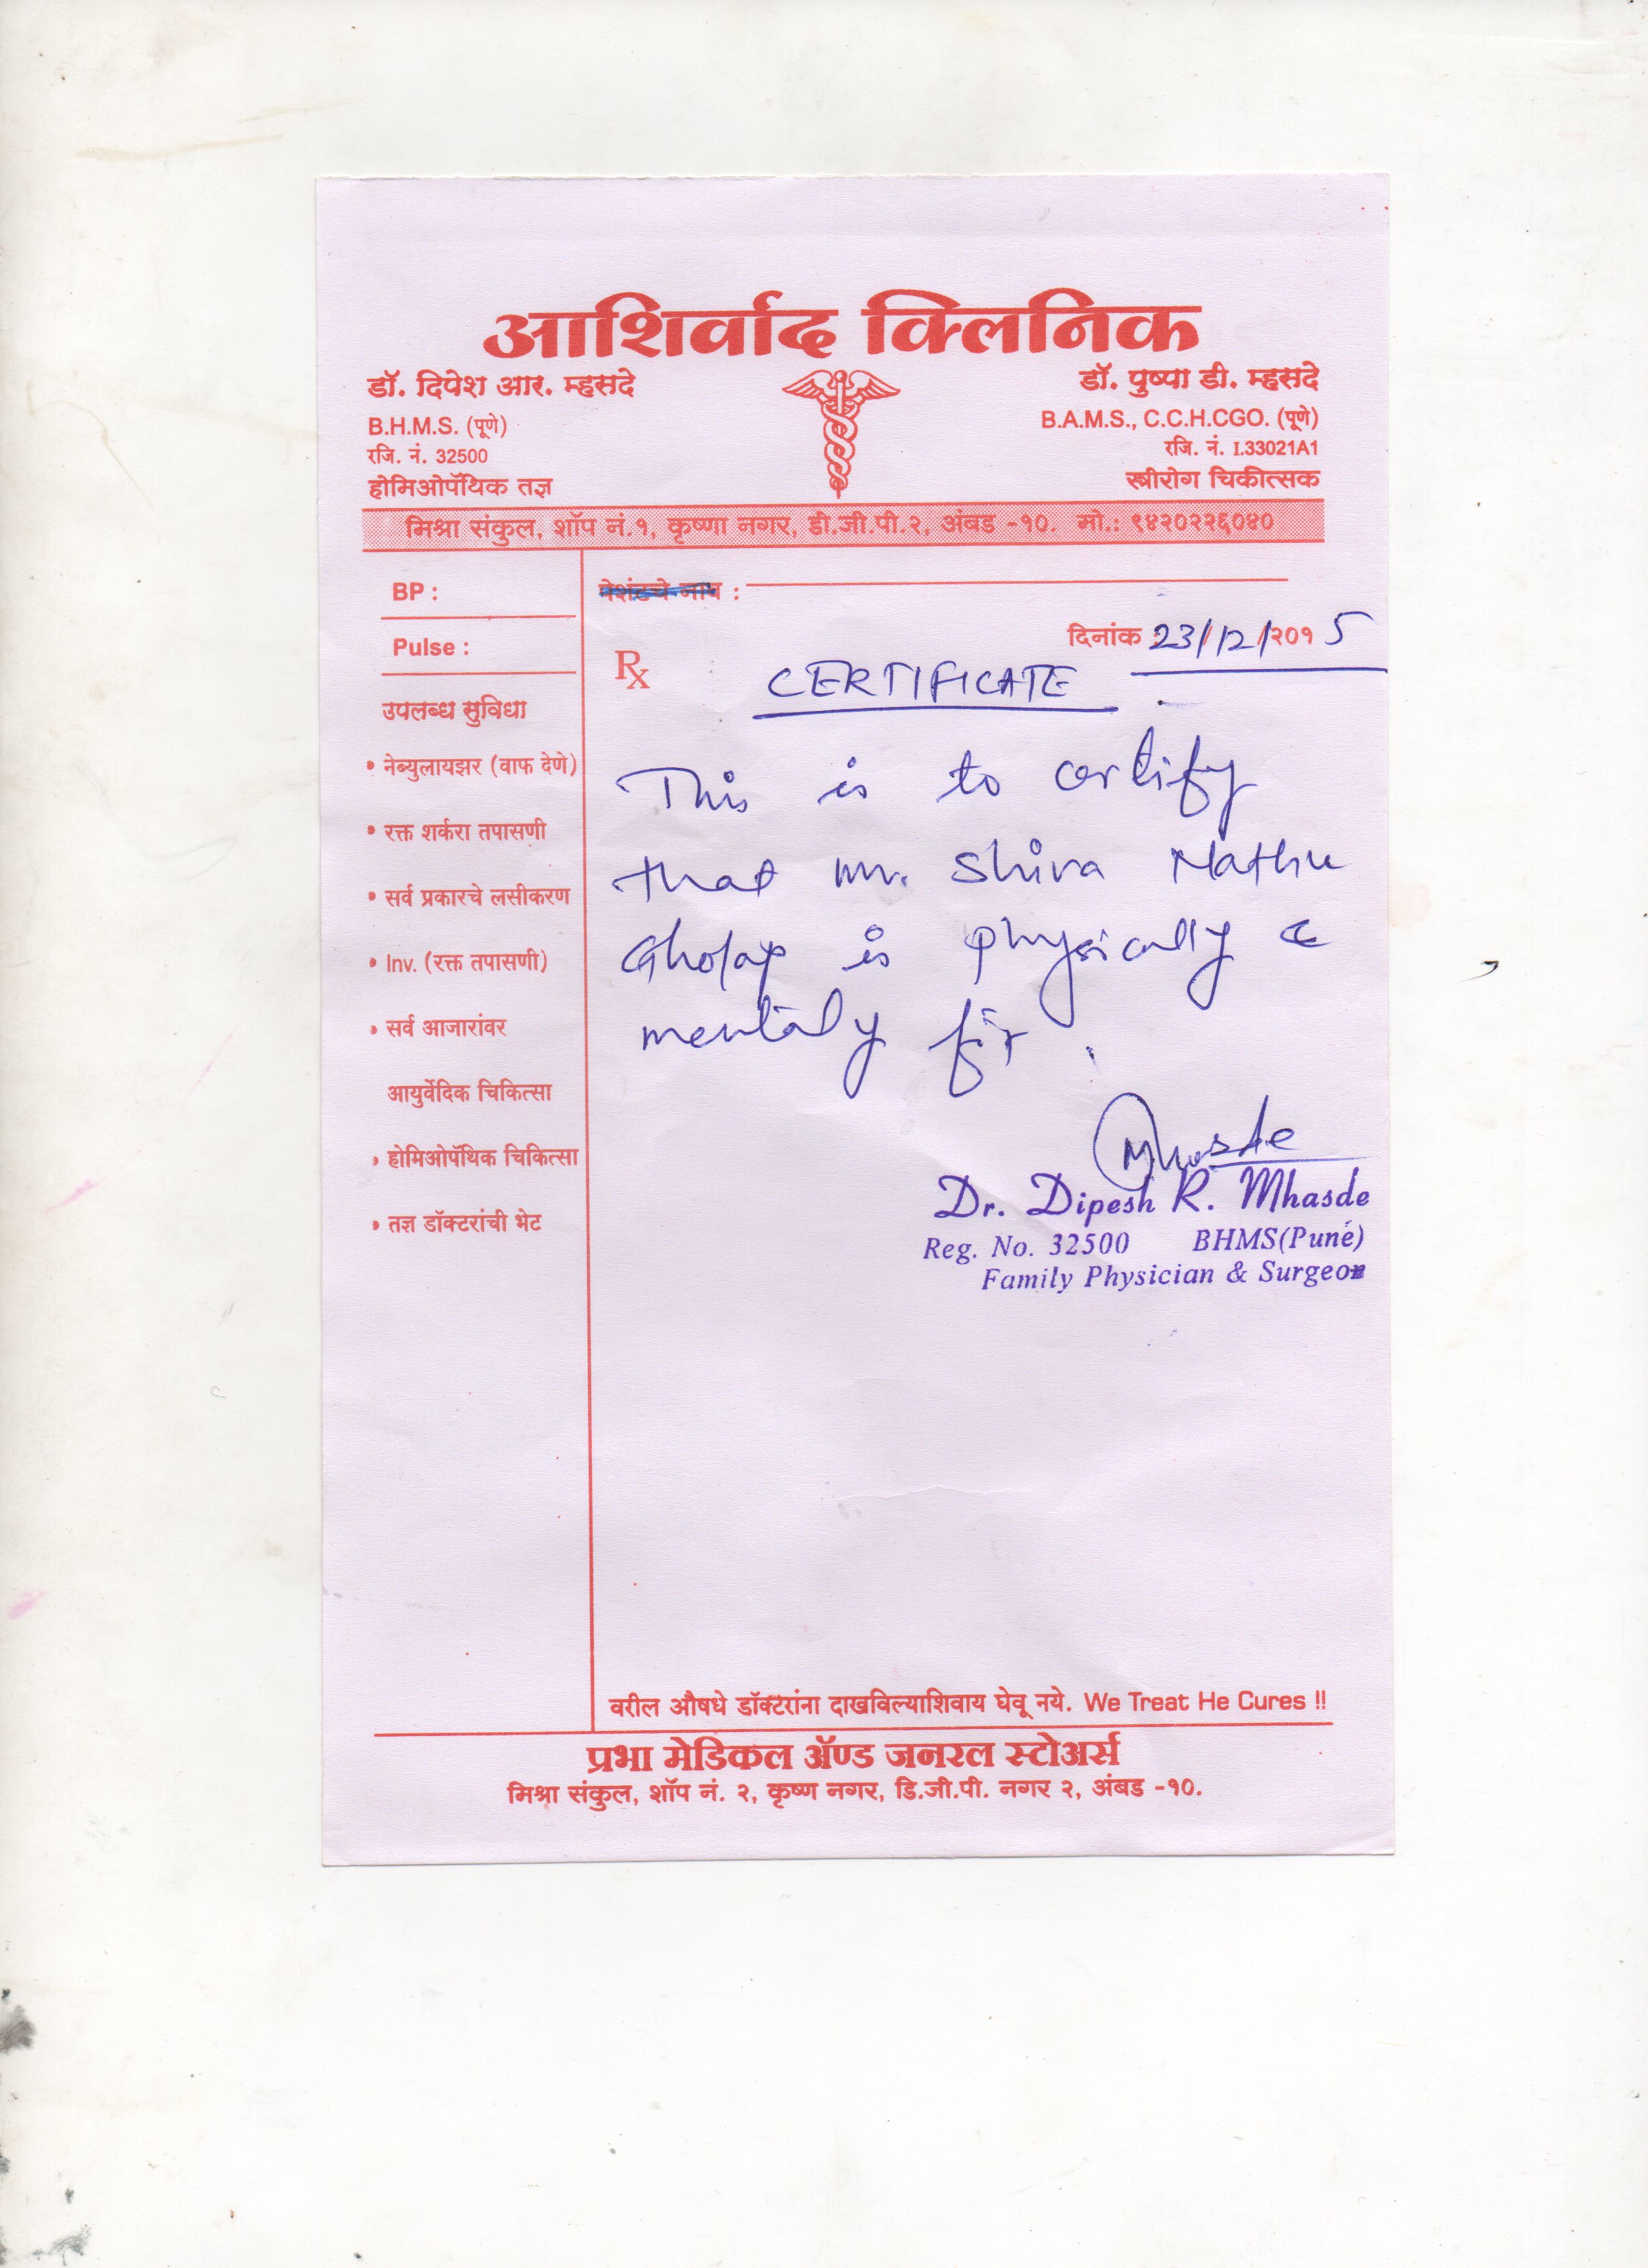 आशिर्वाद क्लिनिक
डॉ. दिपेश आर. म्हसदे
B.H.M.S. (पूणे)
रजि. नं. 32500
होमिओपॅथिक तज्ञ
डॉ. पुष्पा डी. म्हसदे
B.A.M.S., C.C.H.CGO. (पूणे)
रजि. नं. I.33021A1
स्त्रीरोग चिकीत्सक
मिश्रा संकुल, शॉप नं.१, कृष्णा नगर, डी.जी.पी.२, अंबड -१०. मो.: ९४२०२२६०४०
BP :
Pulse :
उपलब्ध सुविधा
• नेब्युलायझर (वाफ देणे)
• रक्त शर्करा तपासणी
• सर्व प्रकारचे लसीकरण
• Inv. (रक्त तपासणी)
• सर्व आजारांवर
आयुर्वेदिक चिकित्सा
• होमिओपॅथिक चिकित्सा
• तज्ञ डॉक्टरांची भेट
पेशंटचे नाव :
दिनांक : 23/12/२०१5
Rx
CERTIFICATE
This is to certify
that Mr. Shiva Nathu
Gholap is physically &
mentaly fit.
Mhasde
Dr. Dipesh R. Mhasde
Reg. No. 32500 BHMS(Pune)
Family Physician & Surgeon
वरील औषधे डॉक्टरांना दाखविल्याशिवाय घेवू नये. We Treat He Cures !!
प्रभा मेडिकल ॲण्ड जनरल स्टोअर्स
मिश्रा संकुल, शॉप नं. २, कृष्ण नगर, डि.जी.पी. नगर २, अंबड -१०.